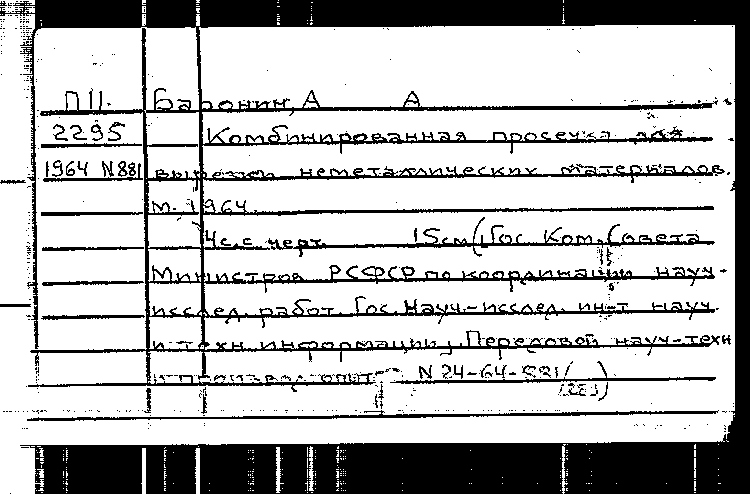 П11. Баронин, А А
2295 Комбинированная просечка для
1964 N881 вырезки неметаллических материалов.
М., 1964.
4с. с черт. 15см (Гос. Ком. Совета
Министров РСФСР по координации науч-
исслед. работ. Гос. Науч-исслед. ин-т науч.
и техн. информации, Передовой науч-техн
и производ. опыт N 24-64-881/